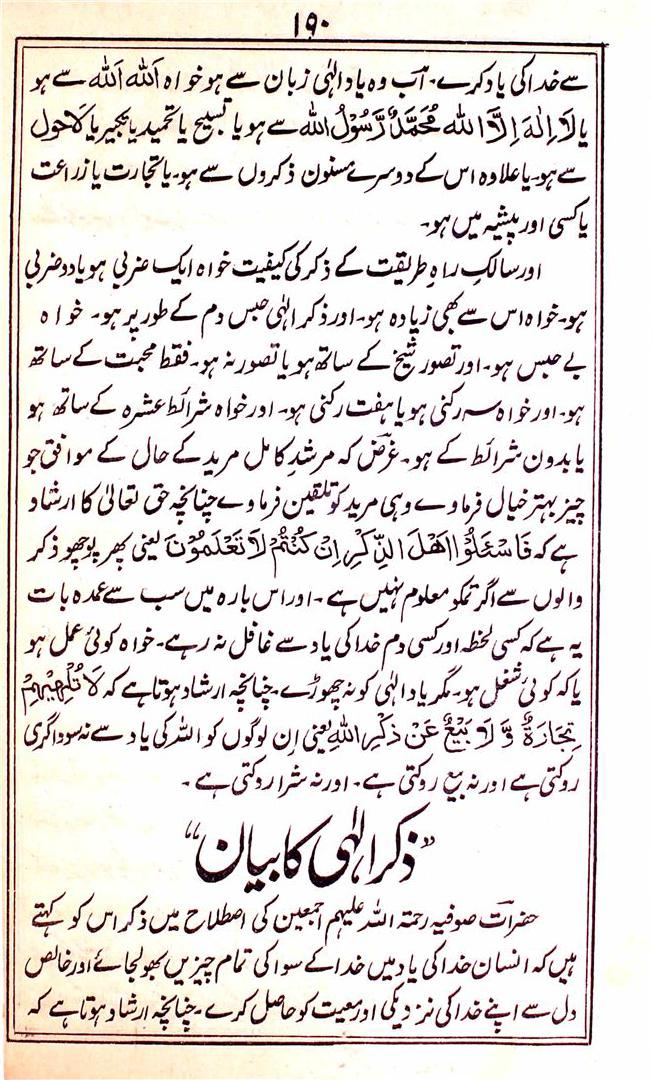 ۱۹۰
سے خدا کی یاد کرے۔ اب وہ یاد الٰہی زبان سے ہو خواہ اَللہ اَللہ سے ہو
یا لَا اِلٰهَ اِلَّا الله مُحَمَّدٌ رَّسُوْلُ الله سے ہو یا تسبیح یا تحمید یا تکبیر یا لاحول
سے ہو۔ یا علاوہ اس کے دوسرے مسنون ذکروں سے ہو۔ یا تجارت یا زراعت
یا کسی اور پیشہ میں ہو۔
اور سالکِ راہِ طریقت کے ذکر کی کیفیت خواہ ایک ضربی ہو یا دو ضربی
ہو۔ خواہ اس سے بھی زیادہ ہو۔ اور ذکر الٰہی حبس دم کے طور پر ہو۔ خواہ
بے حبس ہو۔ اور تصور شیخ کے ساتھ ہو یا تصور نہ ہو۔ فقط محبت کے ساتھ
ہو۔ اور خواہ سہ رکنی ہو یا ہفت رکنی ہو۔ اور خواہ شرائط عشرہ کے ساتھ ہو
یا بدون شرائط کے ہو۔ غرض کہ مرشدِ کامل مرید کے حال کے موافق جو
چیز بہتر خیال فرماوے وہی مرید کو تلقین فرماوے چنانچہ حق تعالیٰ کا ارشاد
ہے کہ فَاسْئَلُوْا اَهْلَ الذِّكْرِ اِنْ كُنْتُمْ لَا تَعْلَمُوْنَ یعنی پھر پوچھو ذکر
والوں سے اگر تمکو معلوم نہیں ہے۔ اور اس بارہ میں سب سے عمدہ بات
یہ ہے کہ کسی لحظہ اور کسی دم خدا کی یاد سے غافل نہ رہے۔ خواہ کوئی عمل ہو
یا کہ کوئی شغل ہو۔ مگر یاد الٰہی کو نہ چھوڑے۔ چنانچہ ارشاد ہوتا ہے کہ لَا تُلْهِيْهِمْ
تِجَارَةٌ وَّ لَا بَيْعٌ عَنْ ذِكْرِ اللهِ یعنی اِن لوگوں کو اللہ کی یاد سے نہ سوداگری
روکتی ہے اور نہ بیع روکتی ہے۔ اور نہ شرا روکتی ہے۔
“ذکر الٰہی کا بیان”
حضرات صوفیہ رحمتہ اللہ علیہم اجمعین کی اصطلاح میں ذکر اس کو کہتے
ہیں کہ انسان خدا کی یاد میں خدا کے سوا کی تمام چیزیں بھولجائے اور خالص
دل سے اپنے خدا کی نزدیکی اور معیت کو حاصل کرے۔ چنانچہ ارشاد ہوتا ہے کہ